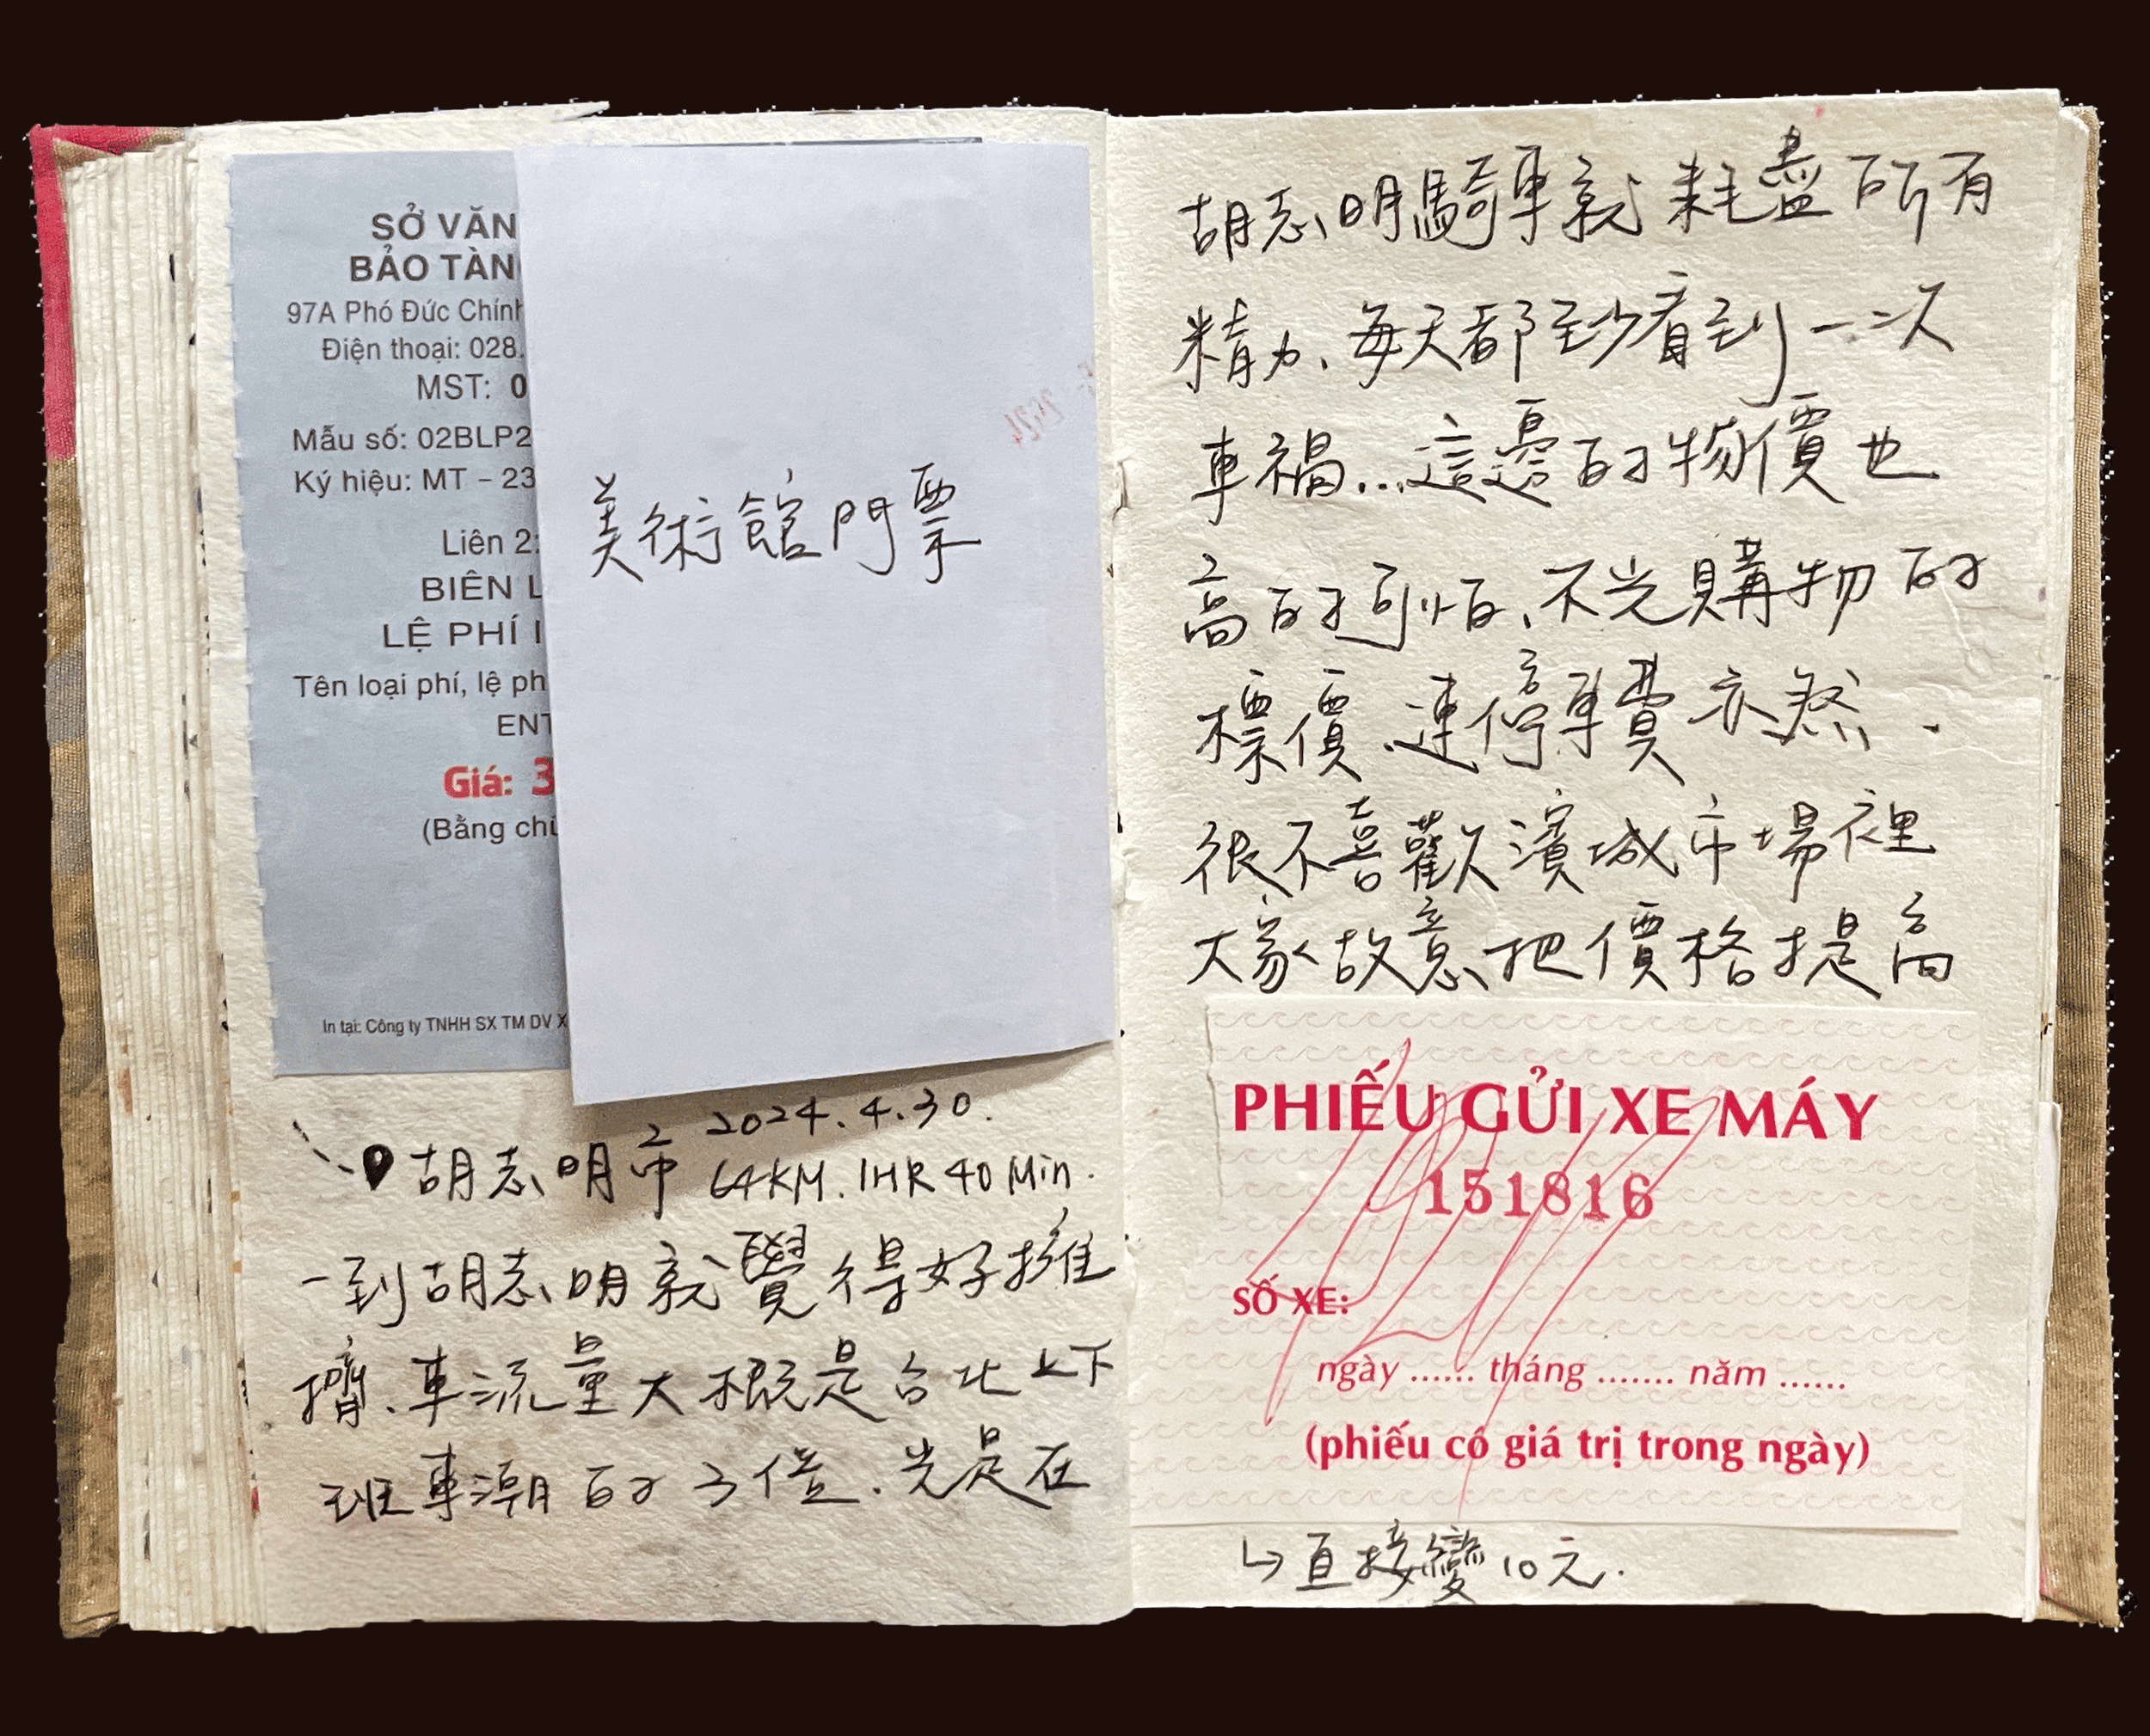 SỞ VĂN
BẢO TÀN
97A Phó Đức Chính
Điện thoại: 028.
MST: 0
Mẫu số: 02BLP2
Ký hiệu: MT - 23
Liên 2:
BIÊN L
LỆ PHÍ
Tên loại phí, lệ ph
ENT
Giá: 3
(Bằng chữ
In tại: Công ty TNHH SX TM DV X
美術館門票
胡志明市 2024.4.30.
64KM. 1HR 40 Min.
一到胡志明就覺得好擁
擠、車流量大概是台北上下
班車潮的3倍. 光是在
胡志明騎車就耗盡所有
精力、每天都至少看到一次
車禍...這邊的物價也
高的可怕、不光購物的
標價、連停車費亦然.
很不喜歡濱城市場裡
大家故意把價格提高
PHIẾU GỬI XE MÁY
151816
SỐ XE:
ngày ...... tháng ....... năm ......
(phiếu có giá trị trong ngày)
↳直接變10元.